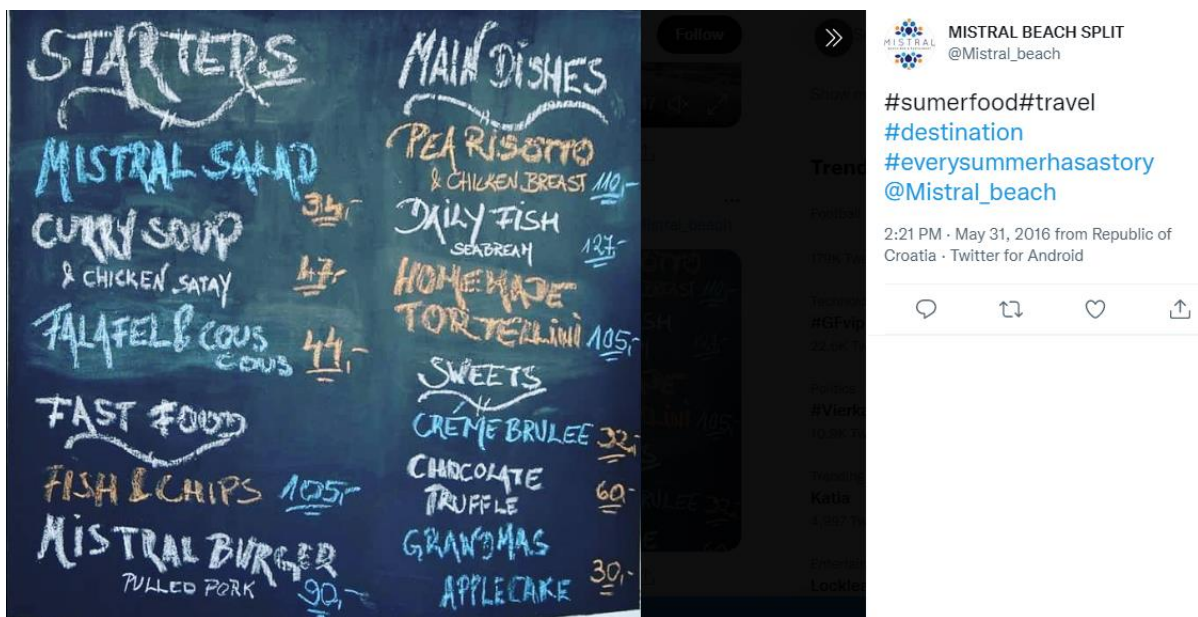 STARTERS
MISTRAL SALAD
34,-
CURRY SOUP
& CHICKEN SATAY
47,-
FALAFEL & COUS
COUS
44,-
FAST FOOD
FISH & CHIPS 105,-
MISTRAL BURGER
PULLED PORK 90,-
MAIN DISHES
PEA RISOTTO
& CHICKEN BREAST 110,-
DAILY FISH
SEABREAM 127,-
HOMEMADE
TORTELLINI 105,-
SWEETS
CRÉME BRULEE 32,-
CHOCOLATE
TRUFFLE 60,-
GRANDMAS
APPLECAKE 30,-
Follow
Trend
#GFvip
#Vierk
Trending
Katia
Locklea
MISTRAL
MISTRAL BEACH SPLIT
@Mistral_beach
#sumerfood#travel
#destination
#everysummerhasastory
@Mistral_beach
2:21 PM · May 31, 2016 from Republic of
Croatia · Twitter for Android